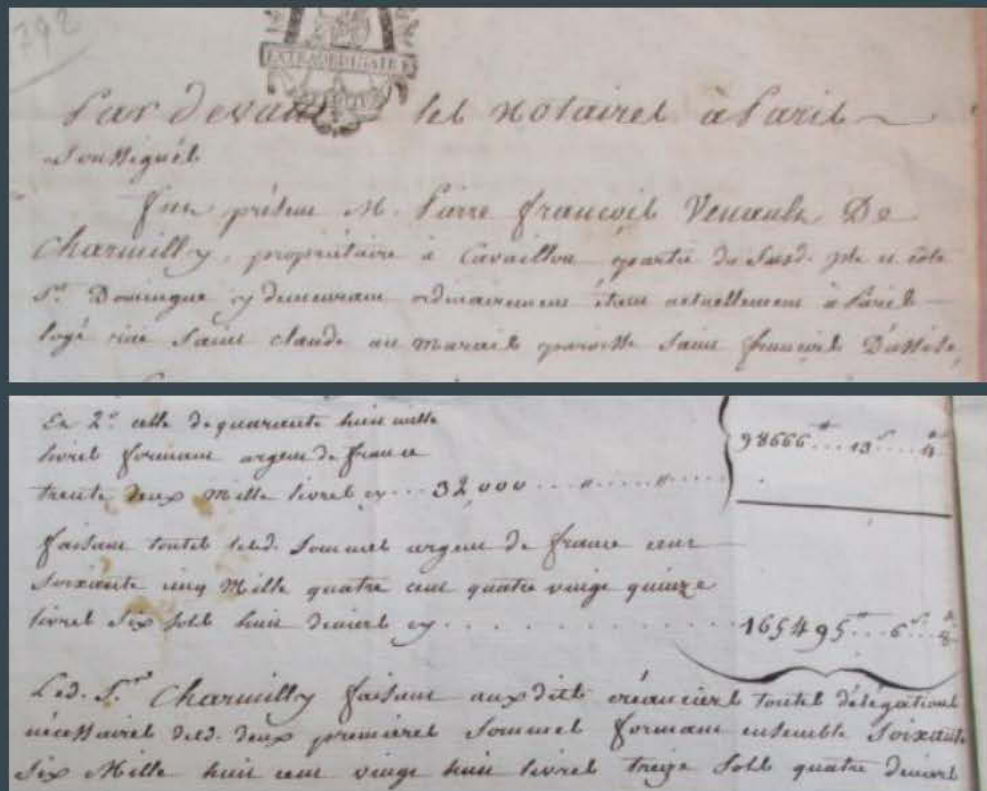 792
EXTRAORDINAIRE
Par devant les Notaires à Paris
Soussignés
fut présent M. Pierre françois Venault De
Charmilly, propriétaire à Cavaillon partie du Sud. isle et côte
St. Domingue y demeurant ordinairement étant actuellement à Paris
logé rue Saint claude au marais paroisse Saint françois D'assise,
Et 2° celle de quarante huit mille
livres formant argent de france
trente deux Mille livres cy... 32,000
98666 ... 13 s ... 4 d
faisant toutes lesd. Sommes argent de france cent
soixante cinq Mille quatre cent quatre vingt quinze
livres Six Sols huit deniers cy
165495 ... 6 s ... 8 d
Led. Sr. Charmilly faisant aux dits créanciers toutes délégations
nécessaires desd. deux premieres Sommes formant ensemble Soixante
Six Mille huit cent vingt huit livres treize Sols quatre deniers